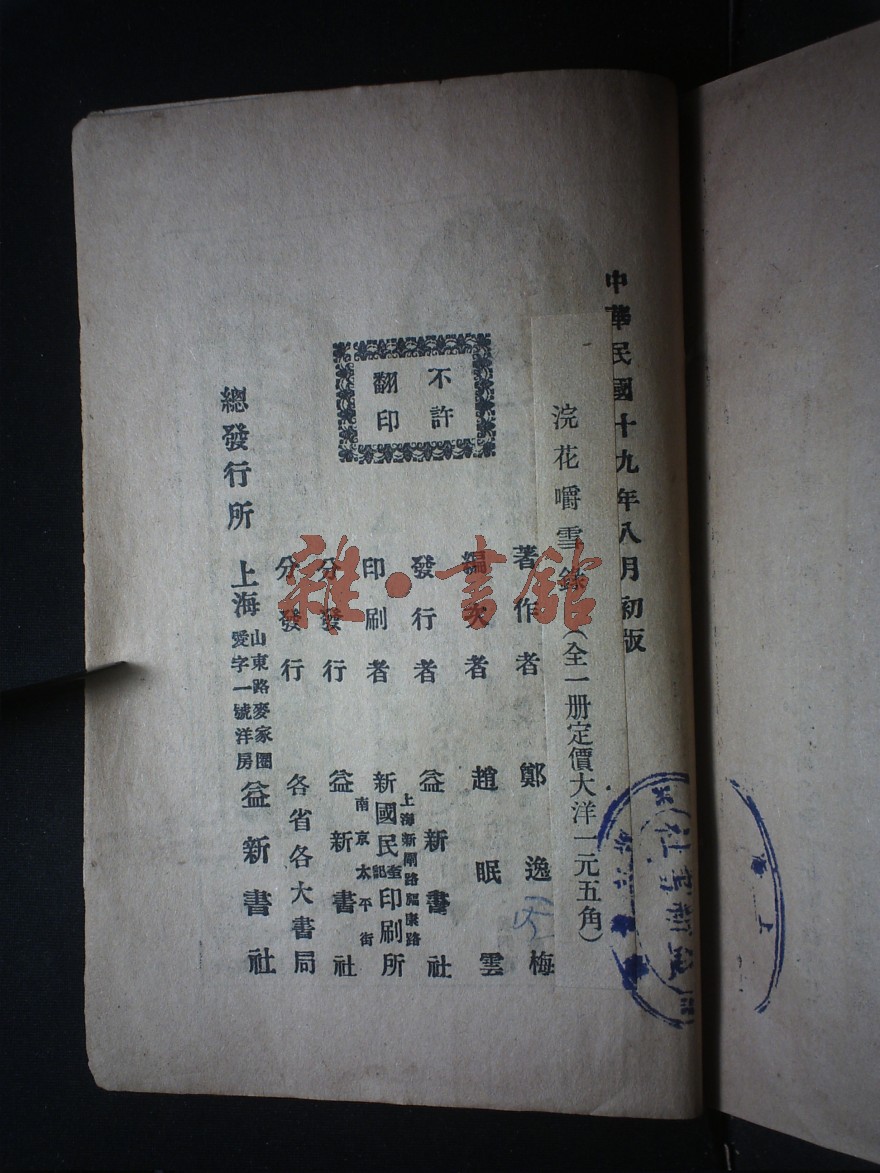 中華民國十九年八月初版
浣花嚼雪錄(全一册定價大洋一元五角)
著作者 鄭逸梅
編次者 趙眠雲
發行者 益新書社
印刷者 上海新閘路福康路 新國民印刷所
分發行 南京太平街 益新書社
分發行 各省各大書局
總發行所 上海 山東路麥家圈愛字一號洋房 益新書社
不許
翻印
雜·書館